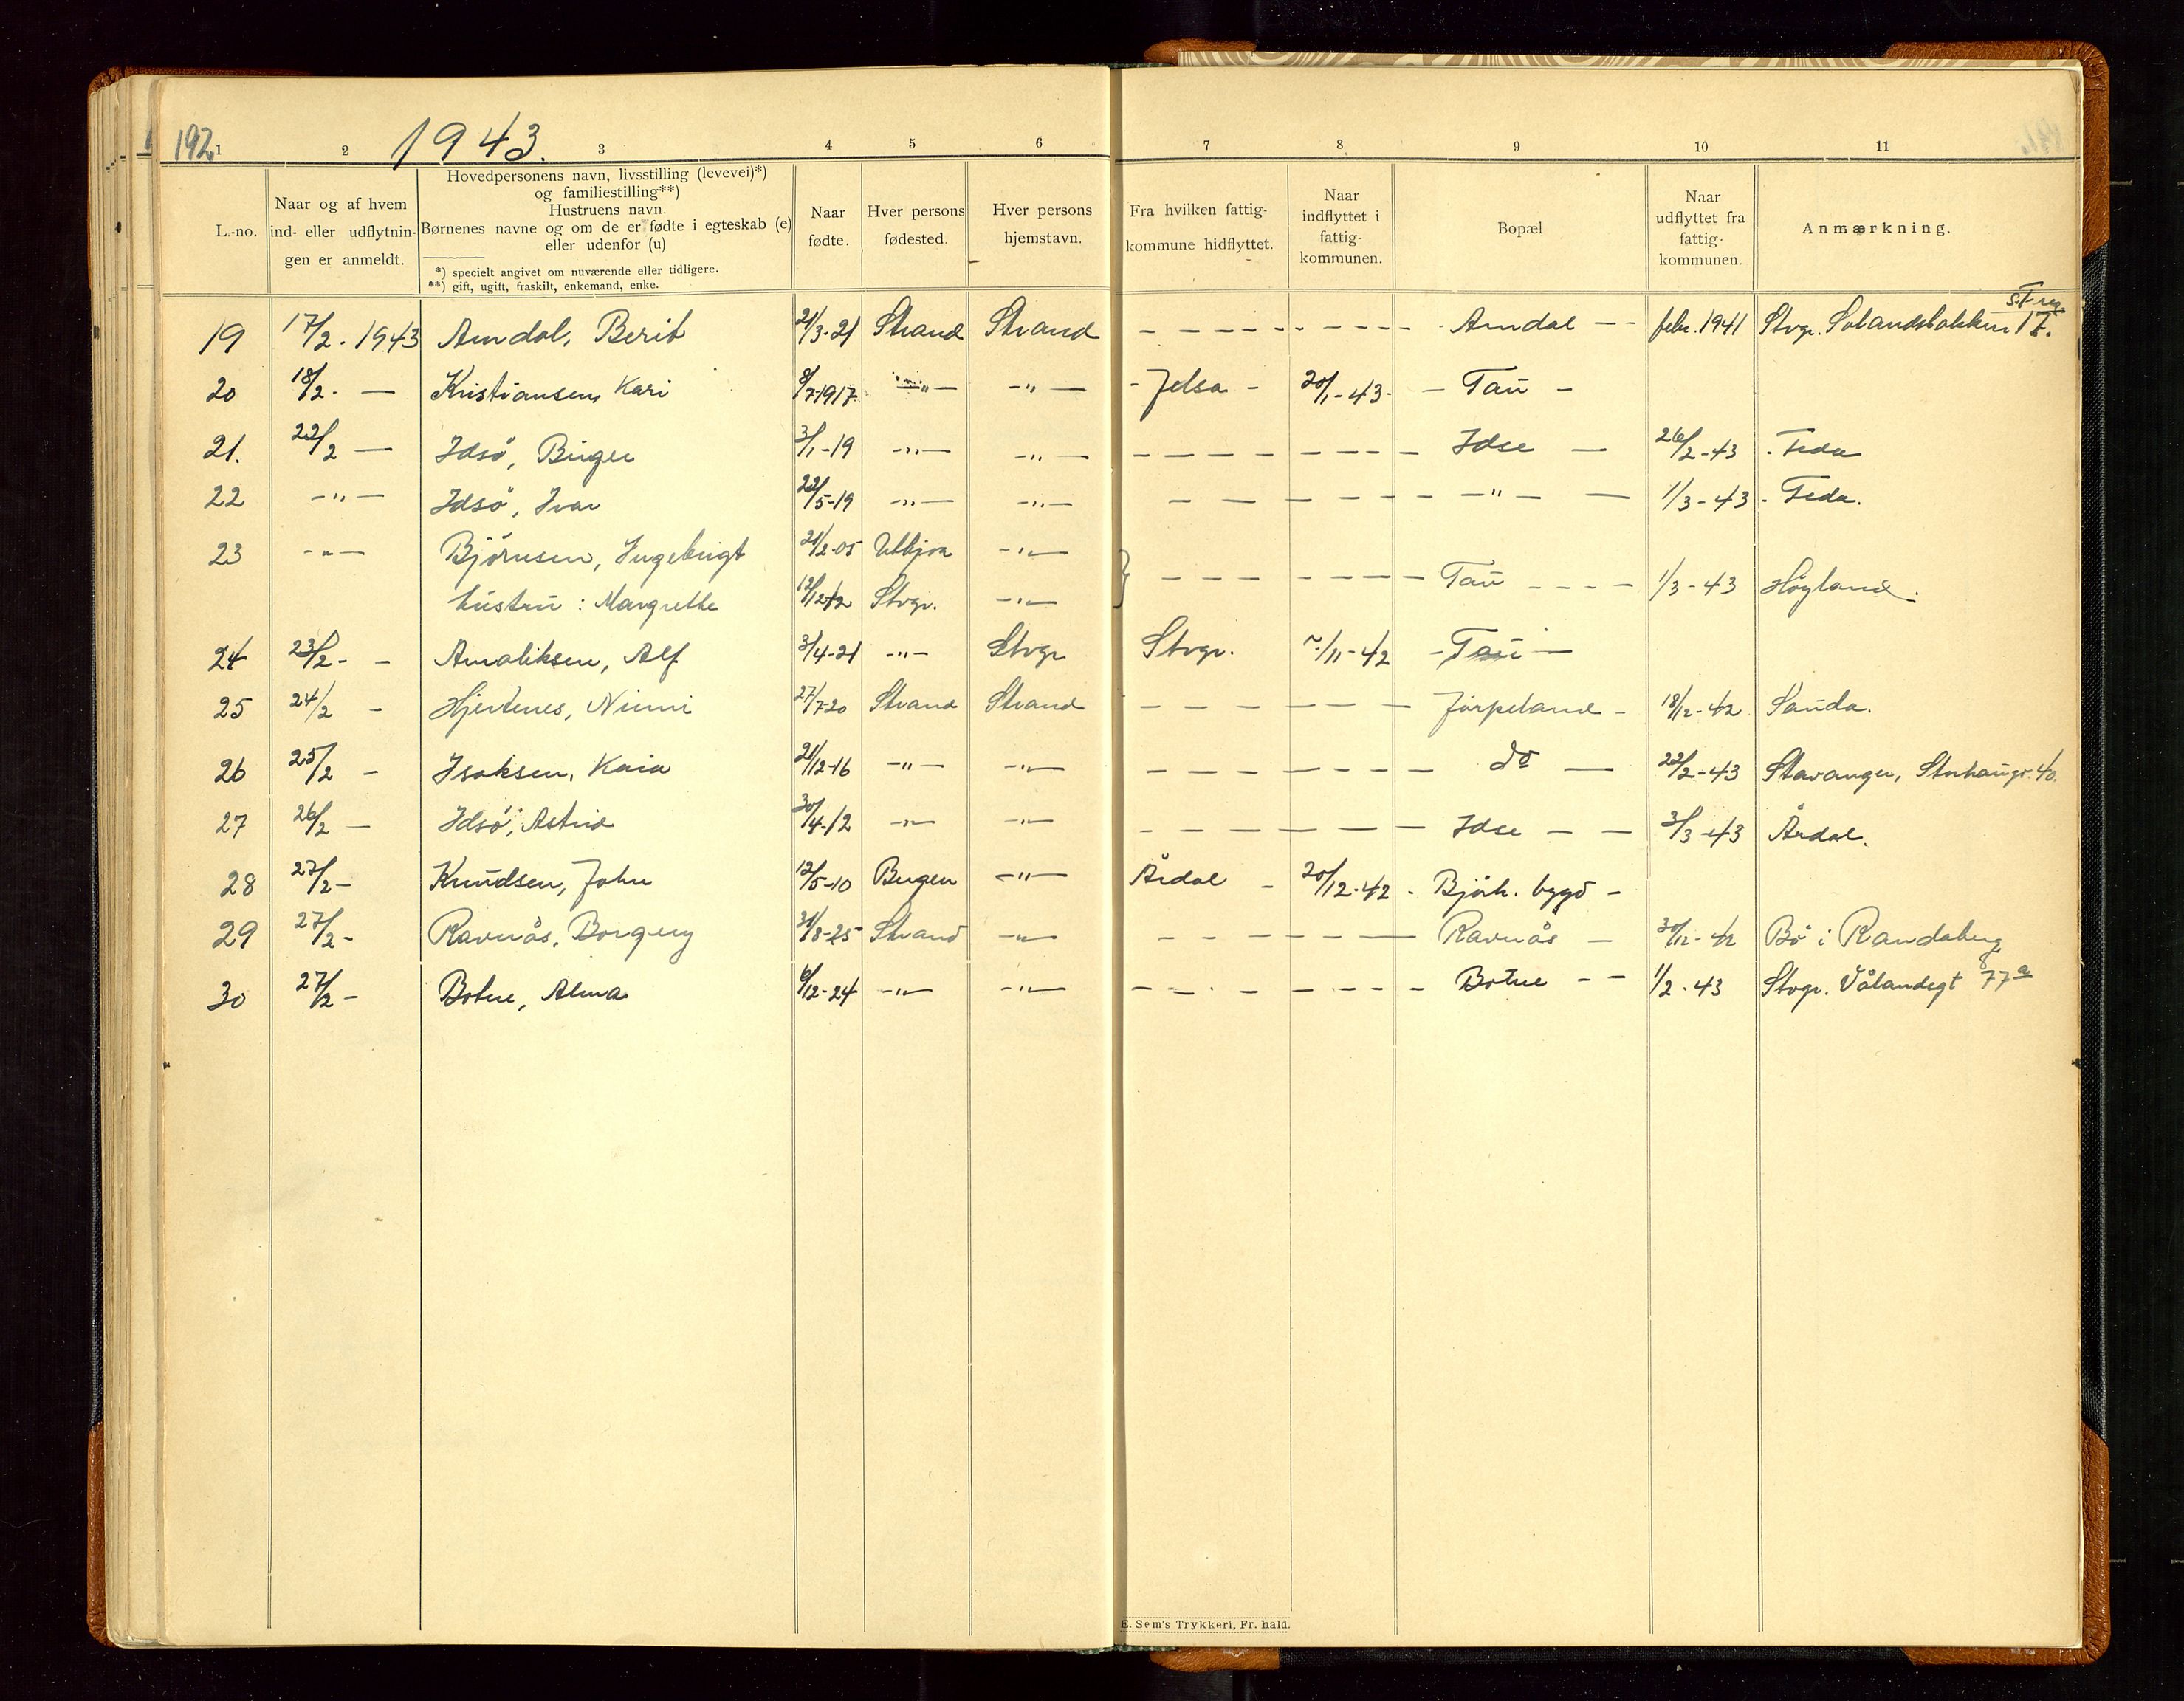 192
1943.
1 2 3 4 5 6 7 8 9 10 11
L.-no.
Naar og af hvem
ind- eller udflytnin-
gen er anmeldt.
Hovedpersonens navn, livsstilling (levevei)*)
og familiestilling**)
Hustruens navn.
Børnenes navne og om de er fødte i egteskab (e)
eller udenfor (u)
*) specielt angivet om nuværende eller tidligere.
**) gift, ugift, fraskilt, enkemand, enke.
Naar
fødte.
Hver persons
fødested.
Hver persons
hjemstavn.
Fra hvilken fattig-
kommune hidflyttet.
Naar
indflyttet i
fattig-
kommunen.
Bopæl
Naar
udflyttet fra
fattig-
kommunen.
Anmærkning.
19 17/2. 1943 Amdal, Berit 21/3-21 Strand Strand - - - - - - Amdal - - febr. 1941 Stvgr. Solandsbakken 17.
20 18/2. — Kristiansen, Kari 8/7-1917 —"— —"— - Jelsa - 20/1-43 - Tau -
21. 22/2 — Idsö, Birger 3/1-19 —"— —"— - - - - - - Idse — 26/2-43 - Feda
22 —"— Idsö, Ivar 22/5-19 —"— —"— - - - - - - —"— — 1/3-43 - Feda.
23 —"— Björnsen, Ingebrigt 21/2-05 Utbjoa —"—
hustru: Margrethe 12/12-12 Stvgr. —"— } - - - - - - Tau - - - - 1/3-43 Höyland.
24 23/2- - Amaliksen, Alf 3/4-21 —"— Stvgr Stvgr. /11-42 - Tau —
25 24/2 - Hjertenes, Nimmi 27/7-20 Strand Strand - - - - - - Jörpeland - 18/12-42 Sauda.
26 25/2 - Isaksen, Kaia 21/12-16 —"— —"— - - - - - - do — 22/2-43 Stavanger, Storhaugv. 40.
27 26/2 — Idsö, Astrid 30/4-12 —"— —"— - - - - - - Idse — — 3/3-43 Årdal.
28 27/2- Knudsen, John 12/5-10 Bergen —"— Årdal - 20/12-42 - Björh. bygd -
29 27/2- Ravnås, Borgny 31/8-25 Strand —"— - - - - - - Ravnås — 30/12-42 Bö i Randaberg
30 27/2- Botne, Alma 6/12-24 —"— —"— - - - - - - Botne - - 1/2-43 Stvgr. Vålandsgt 77a
E. Sem's Trykkeri, Fr. hald.